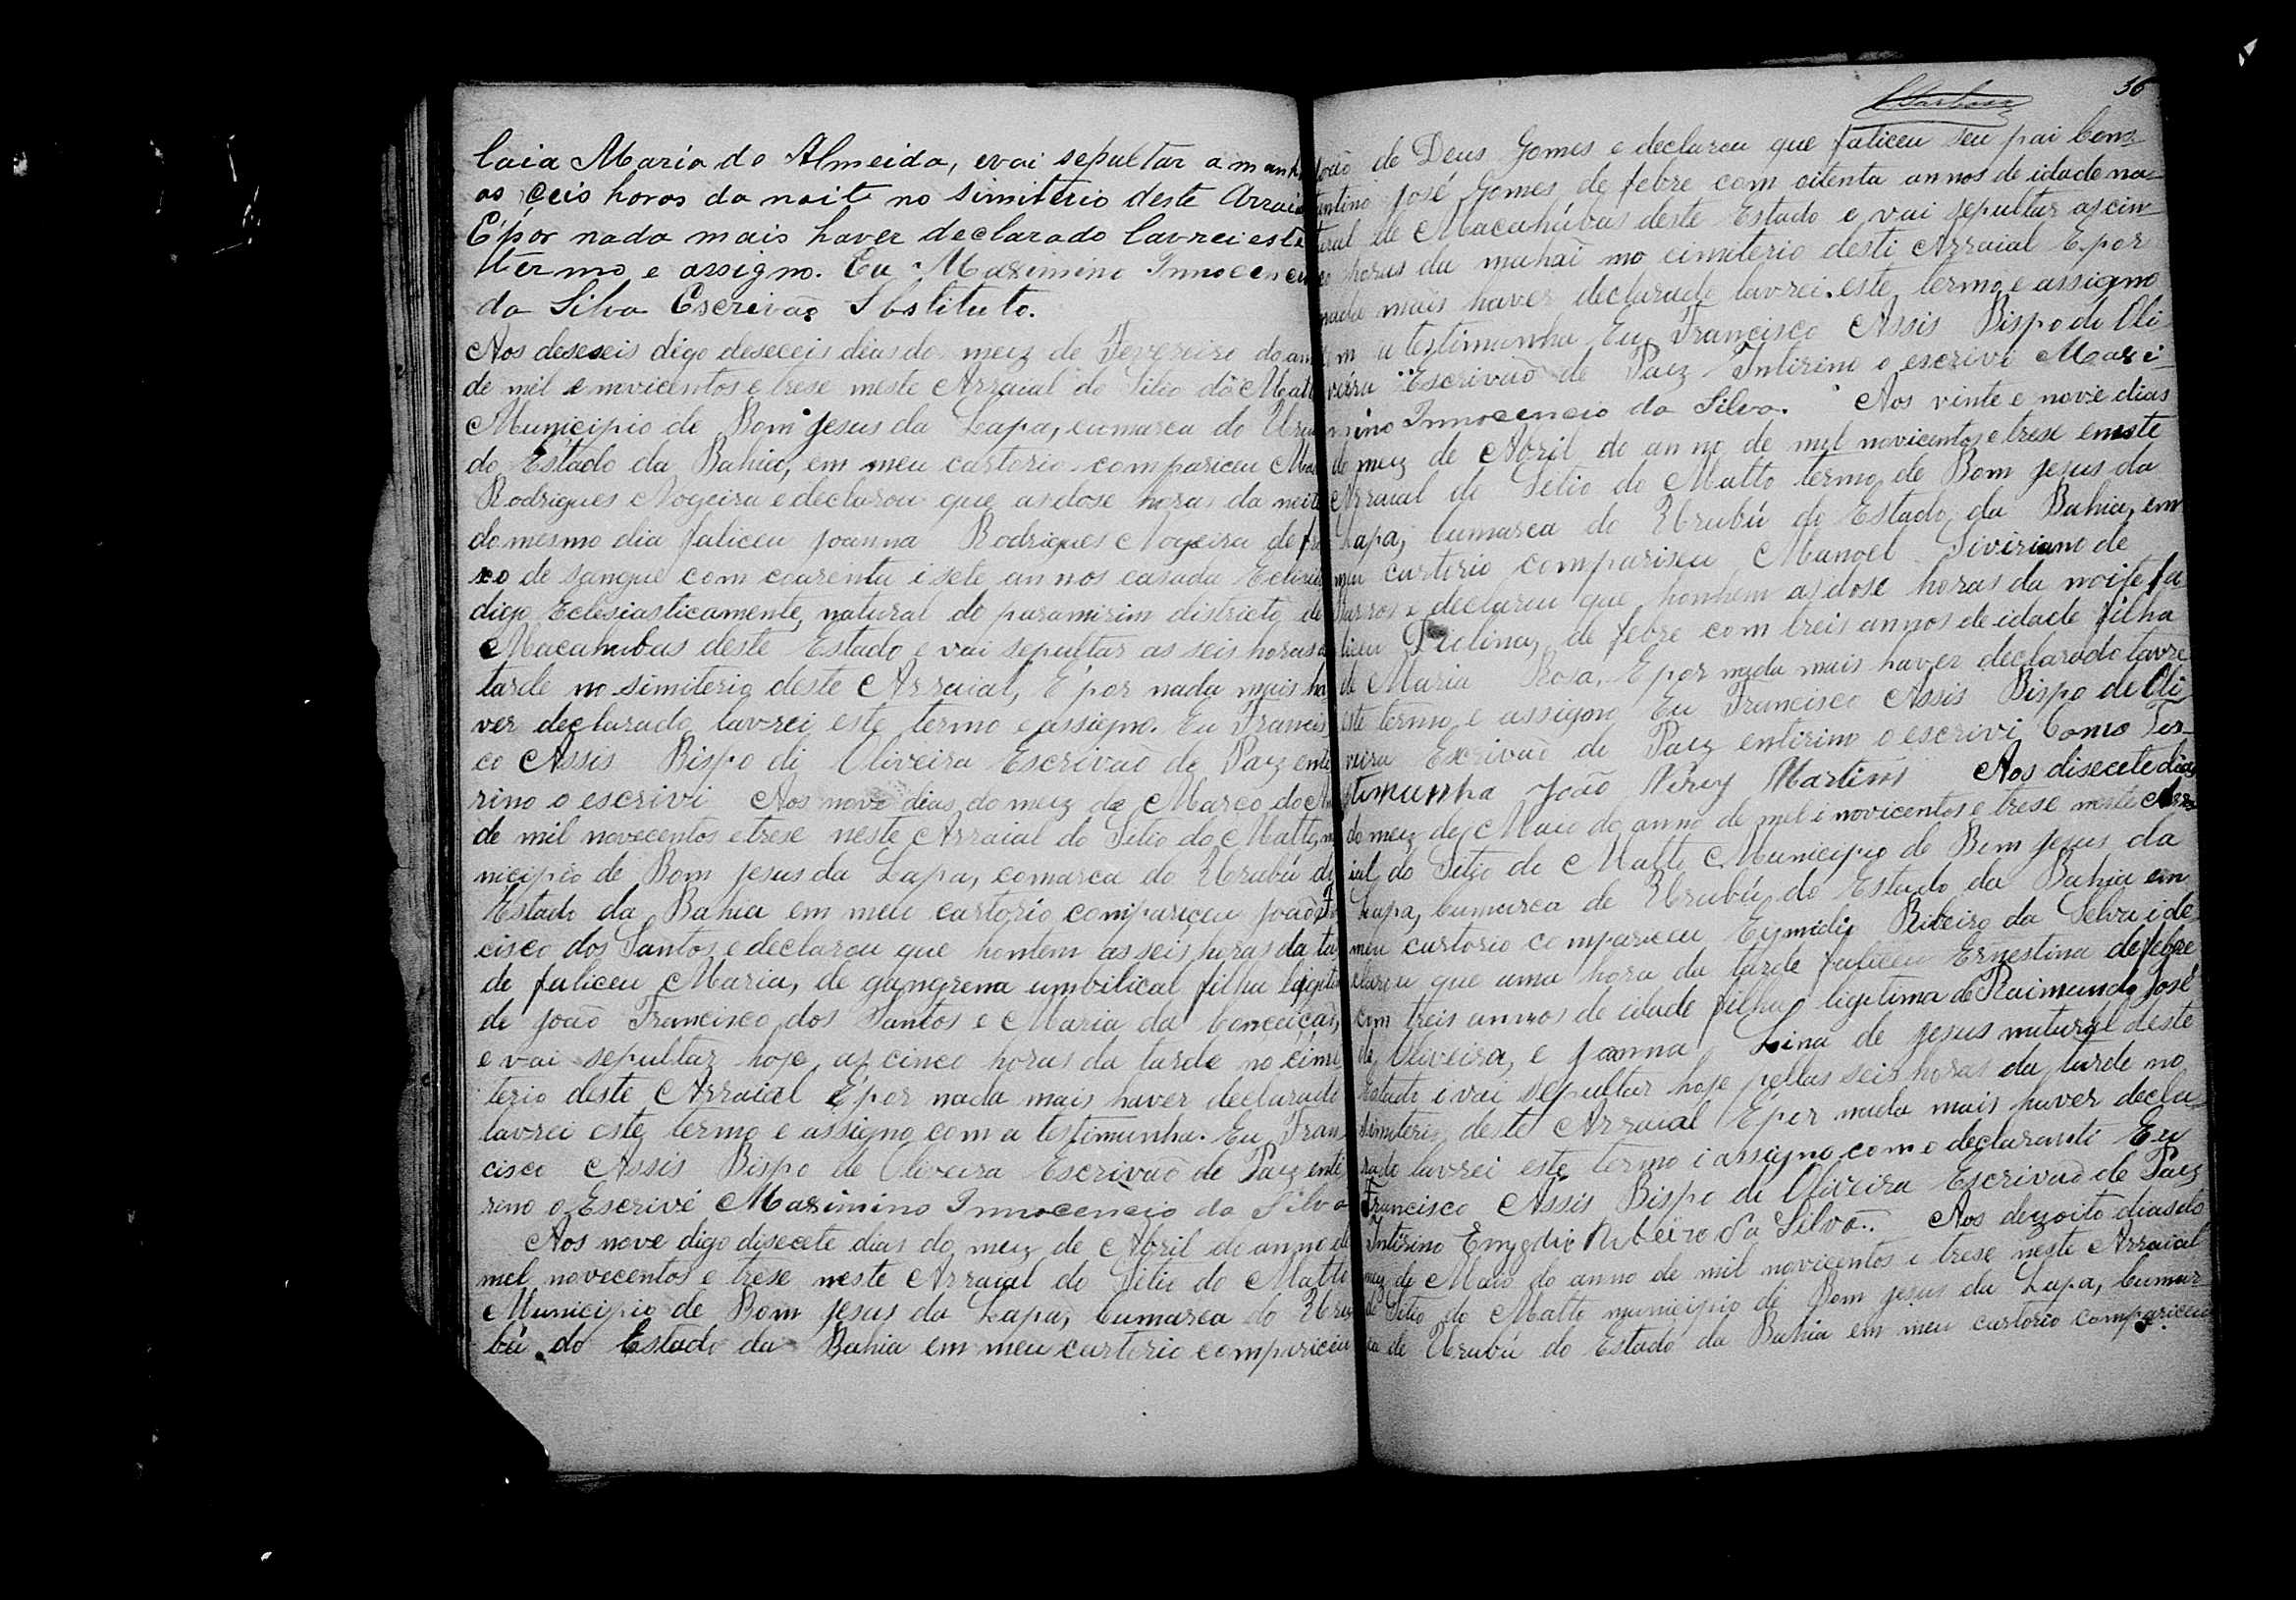 laia Maria do Almeida, evai sepultar amanh
as seis horas da noite no simiterio deste Arraia
E'por nada mais haver declarado lavrei este
termo e assigno. Eu Maximino Innocencio
da Silva Escrivaõ Sbstituto.
Aos deseseis digo deseceis dias do meiz de Fevereiro do an
de mil e novicentos e trese neste Arraial do Sitio do Matt
Municipio de Bom Jesus da Lapa, comarca do Uru
do Estado da Bahia, em meu cartorio compariceu Ma
Rodrigues Nogeira e declarou que as dose horas da noite
do mesmo dia faliceu Joanna Rodrigues Nogeira de fu
xo de sangue com coarenta i sete annos casada Eclisia
digo Eclesiasticamente, natural do paramirim districto de
Macahubas deste Estado e vai sepultar as seis horas a
tarde no simiterio deste Arraial, E'por nada mais ha
ver declarado lavrei este termo e assigno. Eu Francis
co Assis Bispo di Oliveira Escrivaõ de Paz ente
rino o escrivi Aos nove dias do meiz de Março do An
de mil novecentos e trese neste Arraial do Sitio do Matto, m
nicipio de Bom Jesus da Lapa, comarca do Urubú do
Estado da Bahia em meu cartorio, compariceu João Fr
cisco dos Santos e declarou que hontem as seis horas da ta
de faliceu Maria, de gangrena umbilical filha legitim
de João Francisco dos Santos e Maria da Conceiçaõ,
e vai sepultar hoje as cinco horas da tarde no cimi
terio deste Arraial E'por nada mais haver declarado
lavrei este termo e assigno com a testimunha. Eu Fran
cisco Assis Bispo de Oliveira Escrivaõ de Paiz enti
rino o Escrivi Maximino Innocencio da Silva
Aos nove digo disecete dias do meiz de Abril do anno de
mel novecentos e trese neste Arraial do Sitio do Matto
Municipio de Bom Jesus da Lapa, Cumarca do Uru
bú do Estado da Bahia em meu cartorio compariceu
36
João de Deus Gomes e declarou que faliceu seu pai Cons
tantino José Gomes de febre com oitenta annos de idade na
tural de Macahúbas deste Estado e vai sepultar as cin
co horas da manhaī no cimiterio desti Arraial E por
nada mais haver declarado lavrei este termo e assigno
com a testimunha Eu Francisco Assis Bispo de Oli
veira Escrivaõ de Paiz Intirino o escrivi Maxi
mino Innocencio da Silva. Aos vinte e nove dias
do meiz de Abril do anno de mil novicentos e trese eneste
Arraial de Sitio do Matto termo de Bom Jesus da
Lapa, Cumarca do Urubú do Estado da Bahia, em
meu cartorio compariseu Manoel Siviriano de
Barros e declarou que honhem as dose horas da noite fa
liceu de febre com treis annos de idade filha
de Maria Rosa. E por nada mais haver declarado lavre
este termo e assigno Eu Francisco Assis Bispo de Oli
veira Escrivaõ de Paiz entirino o escrivi Como Tes
timunha João Martins Aos disecete dias
do meiz de Maio do anno de mil i novicentos e trese neste Arra
ial do Sitio do Matto Municipio de Bom Jesus da
Lapa, Cumarca de Urubú do Estado da Bahia em
meu cartorio compariceu Egmidio Ribeiro da Selva i de
clarou que uma hora da tarde faliceu Ernestina de febre
com treis annos de idade filha ligitima de Raimundo José
de Oliveira, e Joanna Lina de Jesus natural deste
Estado i vai sepultar hoje pellas seis horas da tarde no
simiterio deste Arraial E'por nada mais haver decla
rado lavrei este termo i assigno com o declaranti Eu
Francisco Assis Bispo di Oliveira Escrivaõ de Paiz
Intirino Emygdio Ribeiro da Silva.. Aos dezoito dias do
meiz de Maio do anno de mil novicentos i trese neste Arraial
de Sitio do Matto municipio di Bom Jesus da Lapa, Cumar
ca de Urubú do Estado da Bahia em meu cartorio compariceu